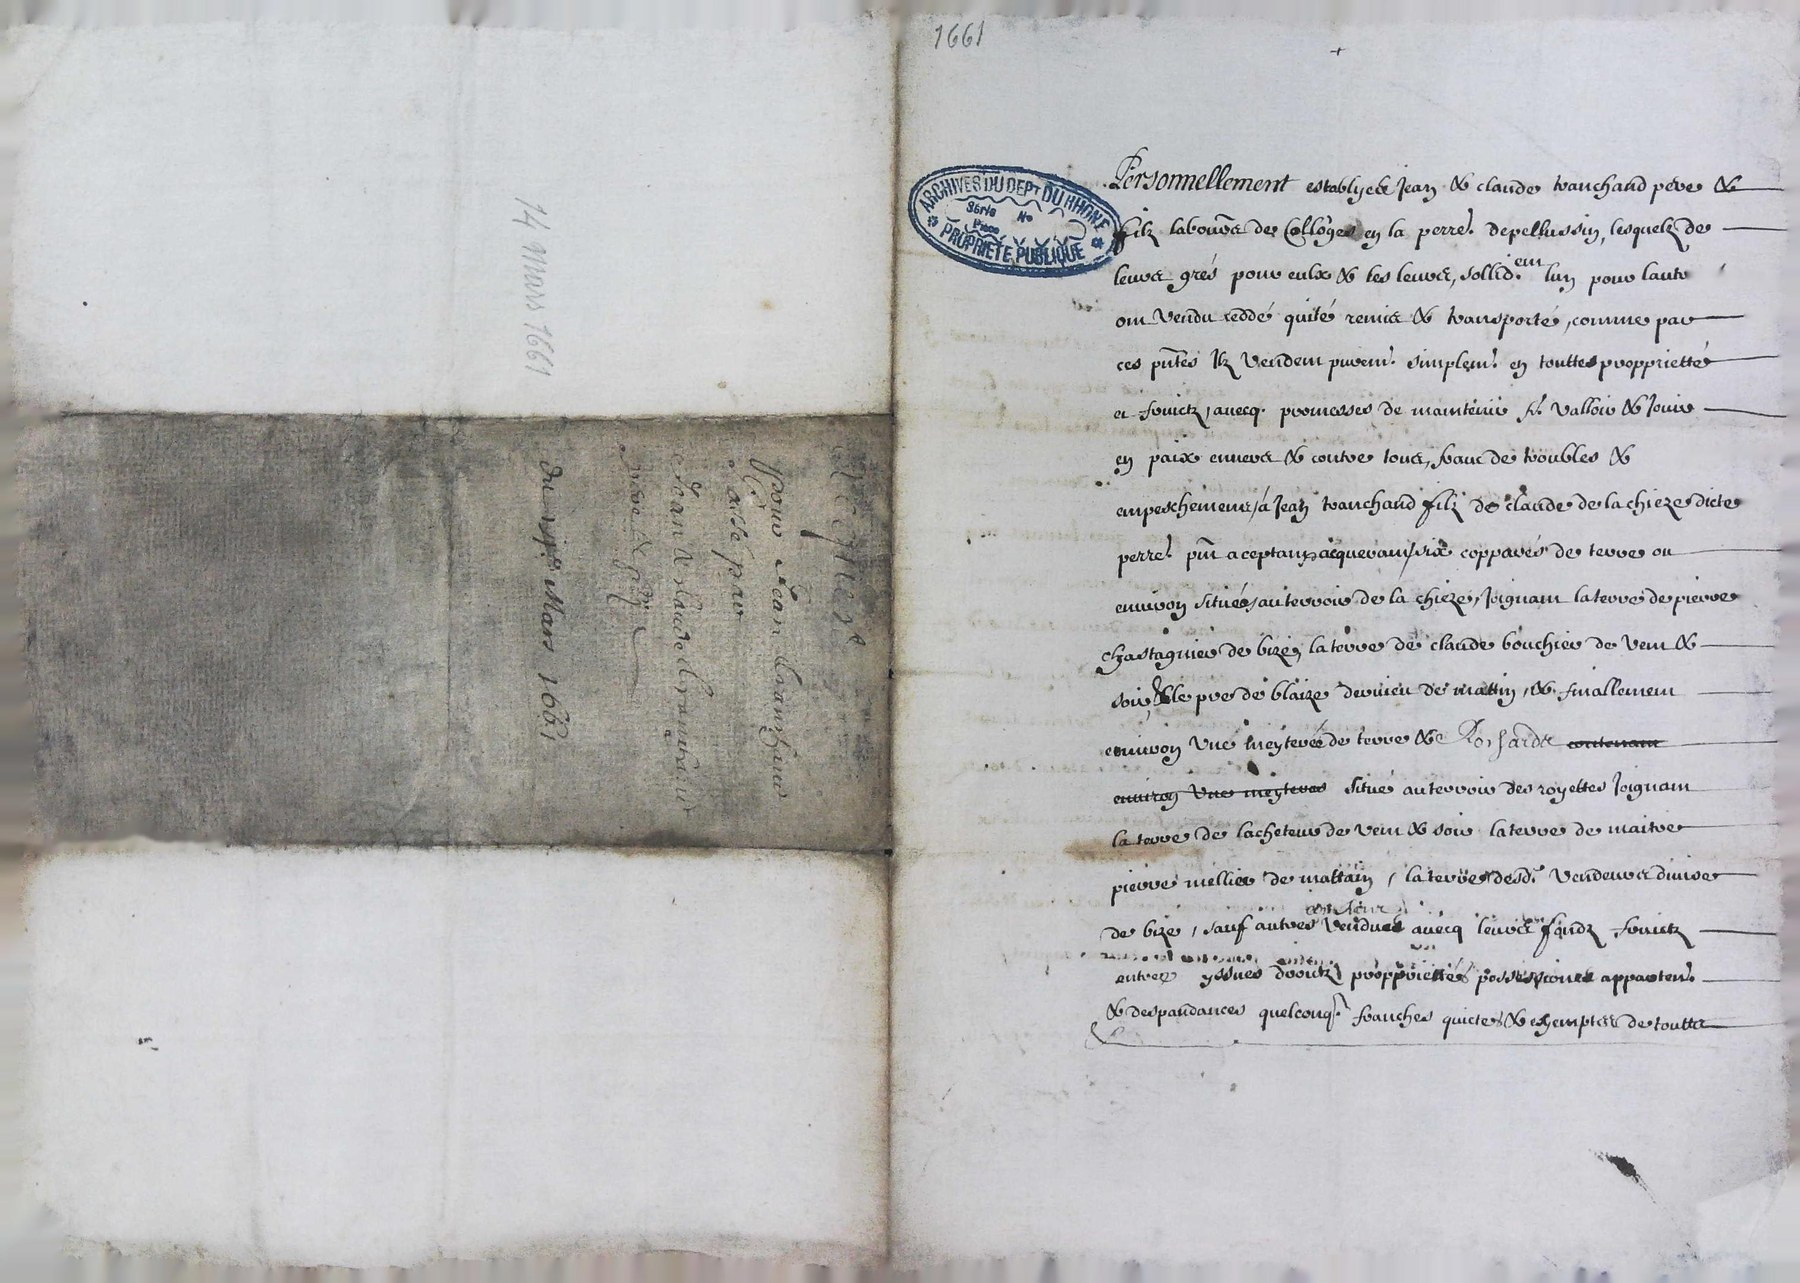 14 mars 1661
pour Jean tranchand
passé par
Jean & claude tranchand
père & filz
du xiiije Mars 1661
1661
ARCHIVES DU DEPT DU RHONE
Série No
Pièce
PROPRIÉTÉ PUBLIQUE
Personnellement establyes Jean & claude tranchand pere &
filz laboure de Colloges en la perre. de pellussin, lesquelz de
leurs grés pour eulx & les leurs, sollid.em lun pour lautr
ont vendu ceddé quité remis & transporté, comme par
ces pntes Ilz vendent purem. simplem. en touttes proppriettés
et fruictz, avecq. promesses de maintenir fe. valloir & Jouir
en paix envers & contre tous, franc de troubles &
empeschemens, à Jean tranchand filz de claude de la chieze dicte
perre. pnt aceptant & acquerant, six copparés de terre ou
environ situées au terroir de la chieze, Joignant la terre de pierre
chastagnier de bize, la terre de claude bouchier de vent &
soir, & le pre de blaize dervieu de mattin, & finallement
environ une meyterée de terre & Rochardte contenant
environ une meyteree situé au terroir des royettes Joignant
la terre de lacheteur de vent & soir la terre de maitre
pierre mellier de mattain, la terre desd. vendeurs divise
de bize, sauf autres
vendues avecq leurs fondz fruictz
entrez yssues droictz proppriettés possessions appartens.
& despandances quelconq. franches quictes & exemptes de touttes